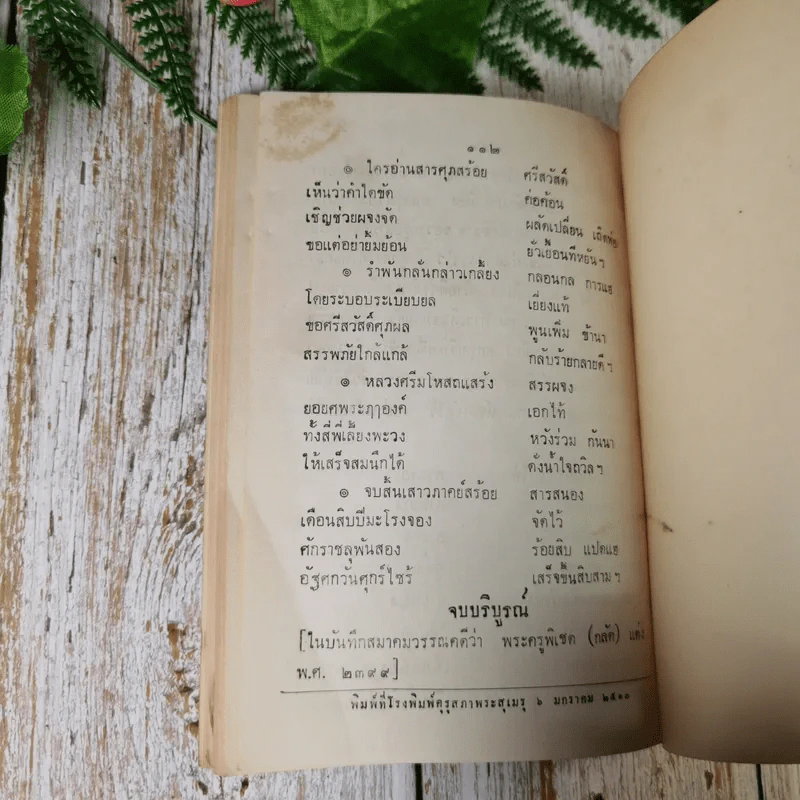 ๑๑๒
๏ ใครอ่านสารศุภสร้อย ศรีสวัสดิ์
เห็นว่าคำใดขัด ค่อค้อน
เชิญช่วยผจงจัด ผลัดเปลี่ยน เถิดพ่อ
ขอแต่อย่ายิ้มย้อน ยั่วเยื้อนทีหยันฯ
๏ รำพันกลั่นกล่าวเกลี้ยง กลอนกล การแฮ
โดยระบอบระเบียบยล เยี่ยงแท้
ขอศรีสวัสดิ์ศุภผล พูนเพิ่ม ข้านา
สรรพภัยใกล้แกล้ กลับร้ายกลายดีฯ
๏ หลวงศรีมโหสถแสร้ง สรรผจง
ยอยศพระฦๅองค์ เอกไท้
ทั้งสี่พี่เลี้ยงพะวง หวังร่วม กันนา
ให้เสร็จสมนึกได้ ดั่งน้ำใจถวิลฯ
๏ จบสิ้นเสาวภาคย์สร้อย สารสนอง
เดือนสิบปีมะโรงจอง จัดไว้
ศักราชลุพันสอง ร้อยสิบ แปดแฮ
อัฐศกวันศุกร์ไซร้ เสร็จขึ้นสิบสามฯ
จบบริบูรณ์
[ในบันทึกสมาคมวรรณคดีว่า พระครูพิเชต (กลัด) แต่ง
พ.ศ. ๒๓๙๙]
พิมพ์ที่โรงพิมพ์คุรุสภาพระสุเมรุ ๖ มกราคม ๒๕๑๑